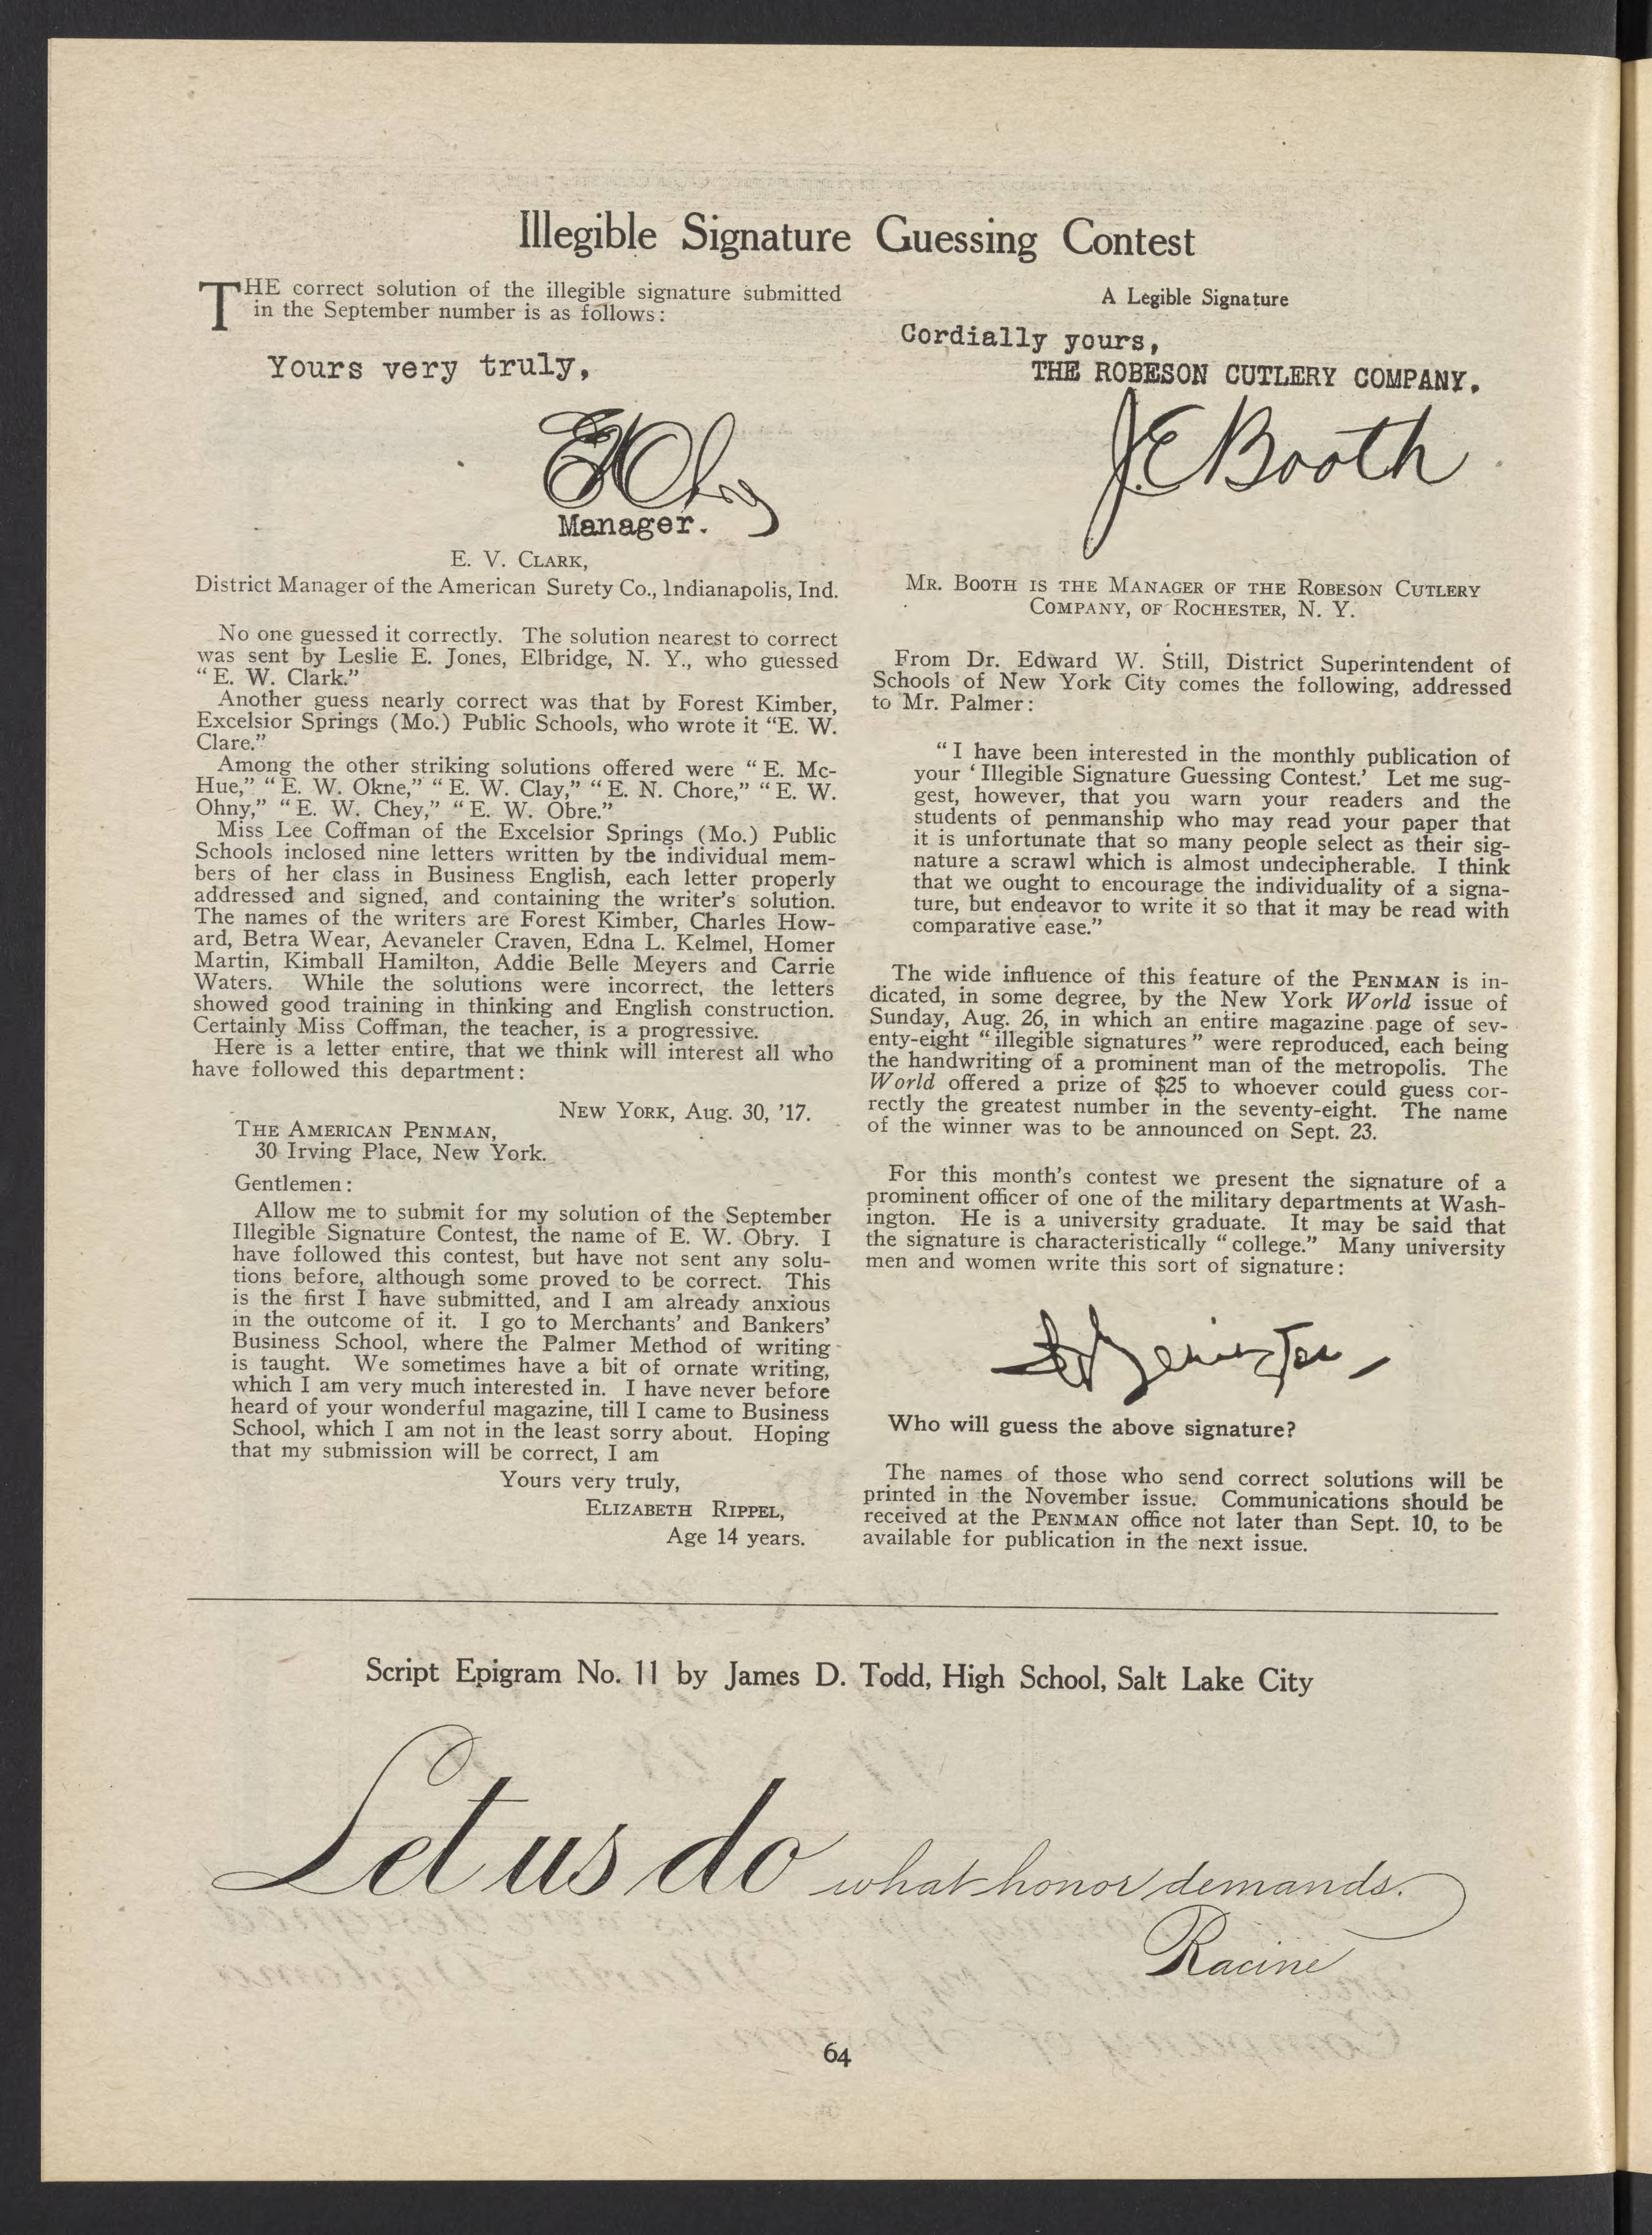 Illegible Signature Guessing Contest
THE correct solution of the illegible signature submitted
in the September number is as follows:
Yours very truly,
Manager.
E. V. CLARK,
District Manager of the American Surety Co., Indianapolis, Ind.
No one guessed it correctly. The solution nearest to correct
was sent by Leslie E. Jones, Elbridge, N. Y., who guessed
“E. W. Clark.”
Another guess nearly correct was that by Forest Kimber,
Excelsior Springs (Mo.) Public Schools, who wrote it “E. W.
Clare.”
Among the other striking solutions offered were “E. Mc-
Hue,” “E. W. Okne,” “E. W. Clay,” “E. N. Chore,” “E. W.
Ohny,” “E. W. Chey,” “E. W. Obre.”
Miss Lee Coffman of the Excelsior Springs (Mo.) Public
Schools inclosed nine letters written by the individual mem-
bers of her class in Business English, each letter properly
addressed and signed, and containing the writer's solution.
The names of the writers are Forest Kimber, Charles How-
ard, Betra Wear, Aevaneler Craven, Edna L. Kelmel, Homer
Martin, Kimball Hamilton, Addie Belle Meyers and Carrie
Waters. While the solutions were incorrect, the letters
showed good training in thinking and English construction.
Certainly Miss Coffman, the teacher, is a progressive.
Here is a letter entire, that we think will interest all who
have followed this department:
NEW YORK, Aug. 30, '17.
THE AMERICAN PENMAN,
30 Irving Place, New York.
Gentlemen:
Allow me to submit for my solution of the September
Illegible Signature Contest, the name of E. W. Obry. I
have followed this contest, but have not sent any solu-
tions before, although some proved to be correct. This
is the first I have submitted, and I am already anxious
in the outcome of it. I go to Merchants' and Bankers'
Business School, where the Palmer Method of writing
is taught. We sometimes have a bit of ornate writing,
which I am very much interested in. I have never before
heard of your wonderful magazine, till I came to Business
School, which I am not in the least sorry about. Hoping
that my submission will be correct, I am
Yours very truly,
ELIZABETH RIPPEL,
Age 14 years.
A Legible Signature
Cordially yours,
THE ROBESON CUTLERY COMPANY.
J.E Booth
MR. BOOTH IS THE MANAGER OF THE ROBESON CUTLERY
COMPANY, OF ROCHESTER, N. Y.
From Dr. Edward W. Still, District Superintendent of
Schools of New York City comes the following, addressed
to Mr. Palmer:
“I have been interested in the monthly publication of
your ‘Illegible Signature Guessing Contest.’ Let me sug-
gest, however, that you warn your readers and the
students of penmanship who may read your paper that
it is unfortunate that so many people select as their sig-
nature a scrawl which is almost undecipherable. I think
that we ought to encourage the individuality of a signa-
ture, but endeavor to write it so that it may be read with
comparative ease.”
The wide influence of this feature of the PENMAN is in-
dicated, in some degree, by the New York World issue of
Sunday, Aug. 26, in which an entire magazine page of sev-
enty-eight “illegible signatures” were reproduced, each being
the handwriting of a prominent man of the metropolis. The
World offered a prize of $25 to whoever could guess cor-
rectly the greatest number in the seventy-eight. The name
of the winner was to be announced on Sept. 23.
For this month's contest we present the signature of a
prominent officer of one of the military departments at Wash-
ington. He is a university graduate. It may be said that
the signature is characteristically “college.” Many university
men and women write this sort of signature:
Who will guess the above signature?
The names of those who send correct solutions will be
printed in the November issue. Communications should be
received at the PENMAN office not later than Sept. 10, to be
available for publication in the next issue.
Script Epigram No. 11 by James D. Todd, High School, Salt Lake City
Let us do what honor demands.
Racine
64